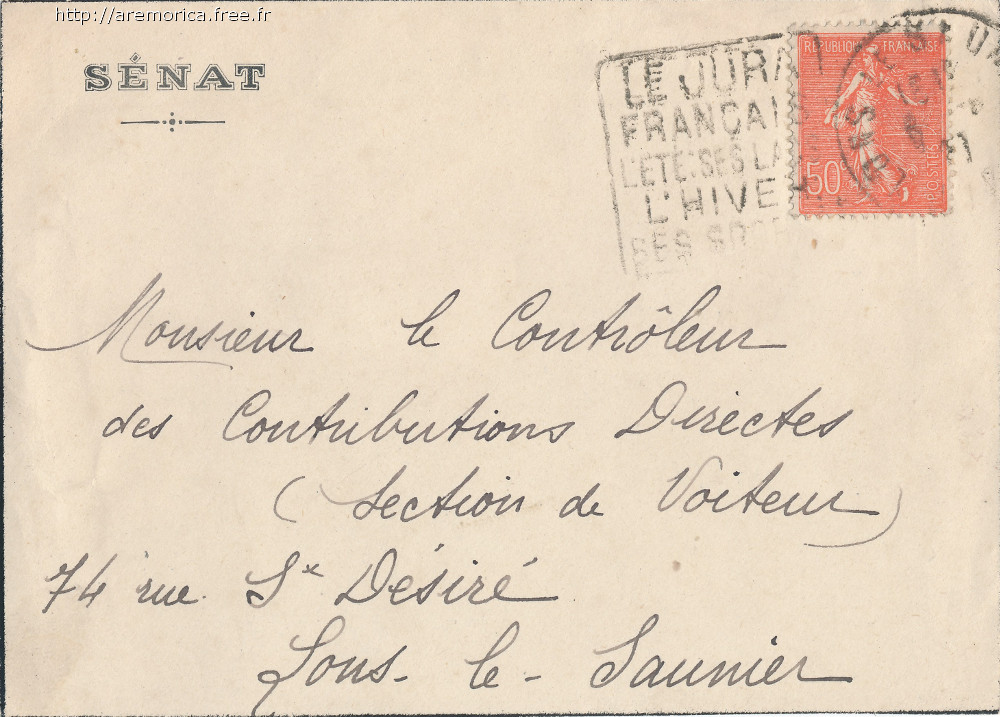 http://aremorica.free.fr
SÉNAT
LE JURA
FRANÇAIS
L'ÉTÉ: SES LA
L'HIVE
SES
REPUBLIQUE FRANÇAISE
50
POSTES
Monsieur le Contrôleur
des Contributions Directes
(Section de Voiteur)
74 rue St Désiré
Lons-le-Saunier